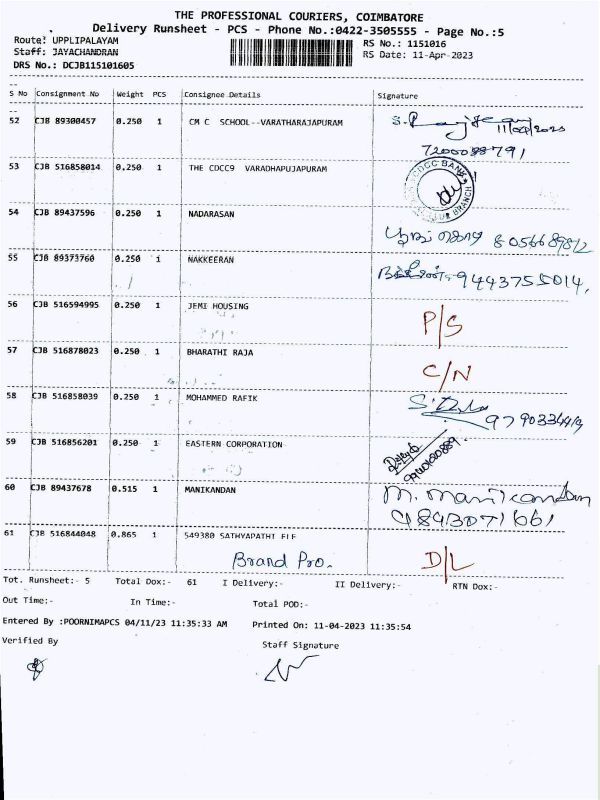 THE PROFESSIONAL COURIERS, COIMBATORE
Delivery Runsheet - PCS - Phone No.:0422-3505555 - Page No.:5
Route: UPPLIPALAYAM RS No.: 1151016
Staff: JAYACHANDRAN RS Date: 11-Apr-2023
DRS No.: DCJB115101605
S No Consignment No Weight PCS Consignee Details Signature
52 CJB 89300457 0.250 1 CM C SCHOOL--VARATHARAJAPURAM
11/04/2023
7200088791
53 CJB 516858014 0.250 1 THE CDCC9 VARADHAPUJAPURAM
CDCC BANK
BRANCH
54 CJB 89437596 0.250 1 NADARASAN
8056689812
55 CJB 89373760 0.250 1 NAKKEERAN
9443755014,
56 CJB 516594995 0.250 1 JEMI HOUSING
P/S
57 CJB 516878023 0.250 1 BHARATHI RAJA
C/N
58 CJB 516858039 0.250 1 MOHAMMED RAFIK
59 CJB 516856201 0.250 1 EASTERN CORPORATION
60 CJB 89437678 0.515 1 MANIKANDAN
M. Manikandan
9893071661
61 CJB 516844048 0.865 1 549380 SATHYAPATHI ELE
Brand Pro. D/L
Tot. Runsheet:- 5 Total Dox:- 61 I Delivery:- II Delivery:- RTN Dox:-
Out Time:- In Time:- Total POD:-
Entered By :POORNIMAPCS 04/11/23 11:35:33 AM Printed On: 11-04-2023 11:35:54
Verified By Staff Signature